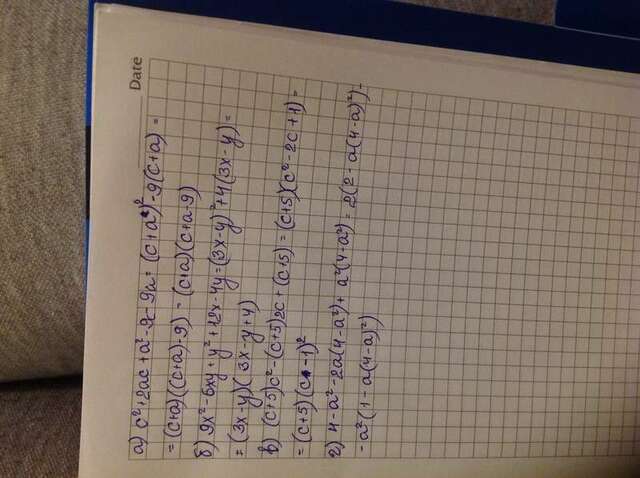 Date
а) c²+2ac+a²-9c-9a = (c+a)²-9(c+a) =
= (c+a)((c+a)-9) = (c+a)(c+a-9)
б) 9x²-6xy+y²+12x-4y=(3x-y)²+4(3x-y)=
= (3x-y)(3x-y+4)
в) (c+5)c²-(c+5)2c+(c+5) = (c+5)(c²-2c+1)=
= (c+5)(c-1)²
г) 4-a²-2a(4-a²)+a²(4-a²) = 2(2-a(4-a)²)-
-a²(1-a(4-a)²)